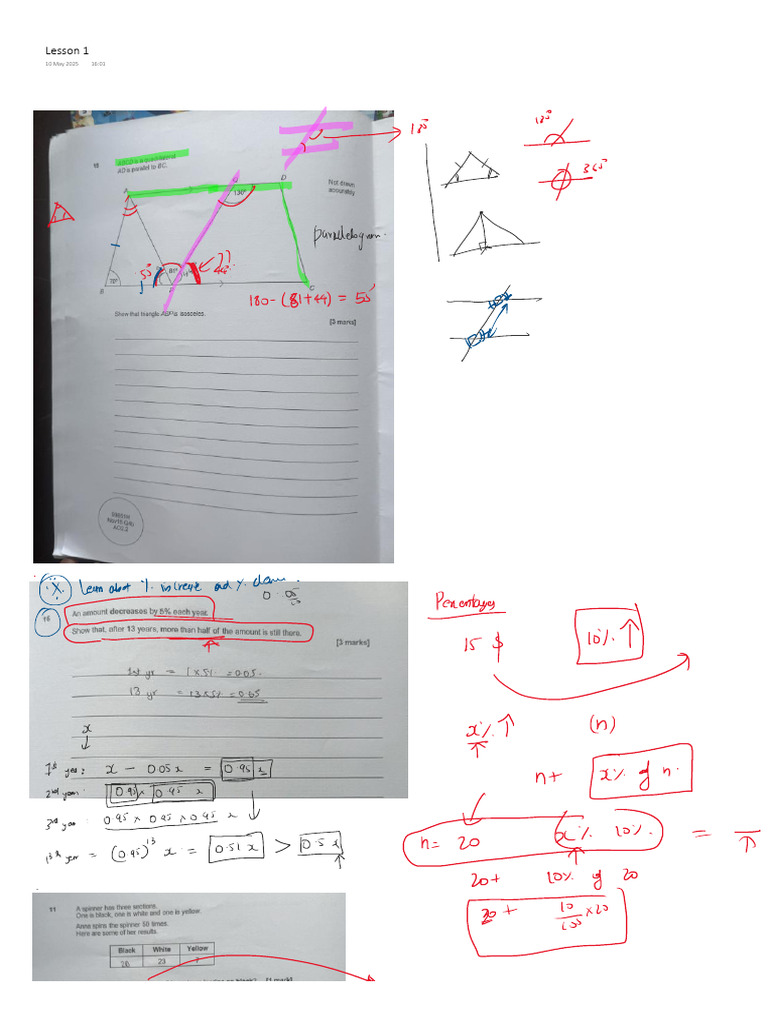 Lesson 1
10 May 2025 16:01
18
ABCD is a quadrilateral
AD is parallel to BC.
Not drawn
accurately
A
Q
D
130°
parallelogram.
70°
55°
81°
44°
??
B
P
C
180-(81+44) = 55°
Show that triangle ABP is isosceles.
[3 marks]
180°
180°
360°
Learn about % increase and % 
0.05
16
An amount decreases by 5% each year.
Show that, after 13 years, more than half of the amount is still there.
[3 marks]
1st yr = 1x5% = 0.05.
13 yr = 13x5% = 0.65
x
1st year: x - 0.05x = 0.95 x
2nd year: 0.95 x 0.95 x
3rd year: 0.95 x 0.95 x 0.95 x
13th year = (0.95)^13 x = 0.51 x > 0.5 x
Percentages
15 $
10% ↑
x% ↑ (n)
n+ x% of n.
n= 20 x% 10% =
20+ 10% of 20
20 + 10/100 x20
11
A spinner has three sections.
One is black, one is white and one is yellow.
Anna spins the spinner 50 times.
Here are some of her results.
Black White Yellow
20 23 7
black? [1 mark]